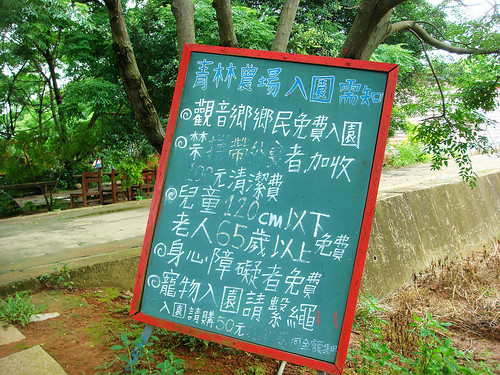 青林農場入園需知
◎觀音鄉鄉民免費入園
◎禁攜帶外食者加收
100元清潔費
◎兒童120cm以下
老人65歲以上免費
◎身心障礙者免費
◎寵物入園請繫繩!!
入園請購50元